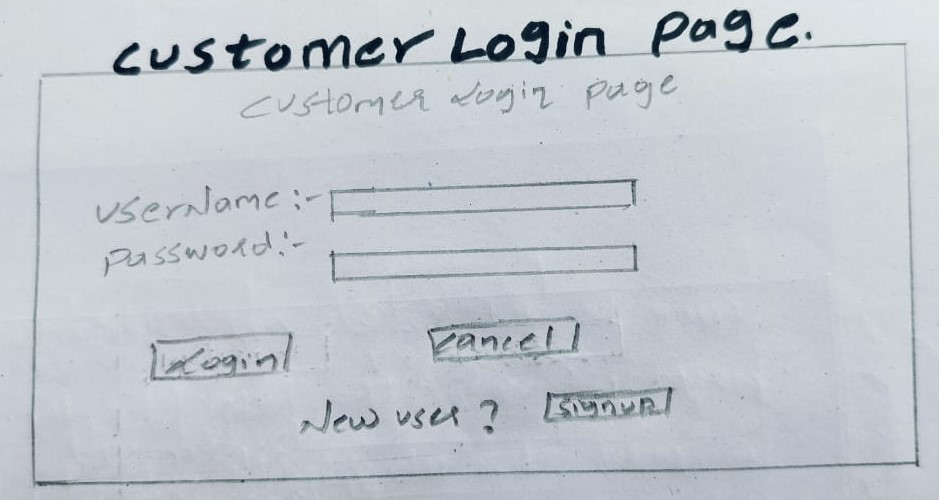 customer Login page.
customer Login page
UserName :-
Password :-
Login
Cancel
New user ? signup